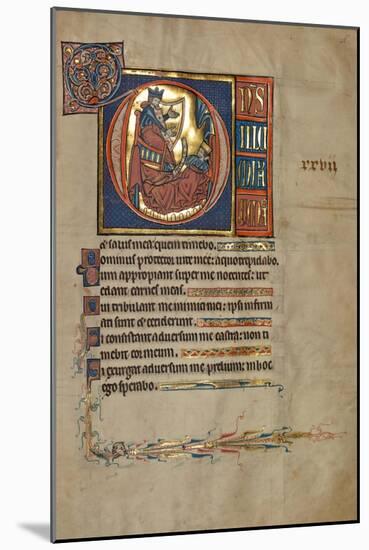 DNS
xxvii
et salus mea: quem timebo.
Dominus protector uite mee: a quo trepidabo.
Dum appropiant super me nocentes: ut
edant carnes meas.
Qui tribulant me inimici mei: ipsi infirm
ati sunt et ceciderunt.
Si consistant aduersum me castra: non ti
mebit cor meum.
Si exurgat aduersum me prelium: in hoc
ego sperabo.